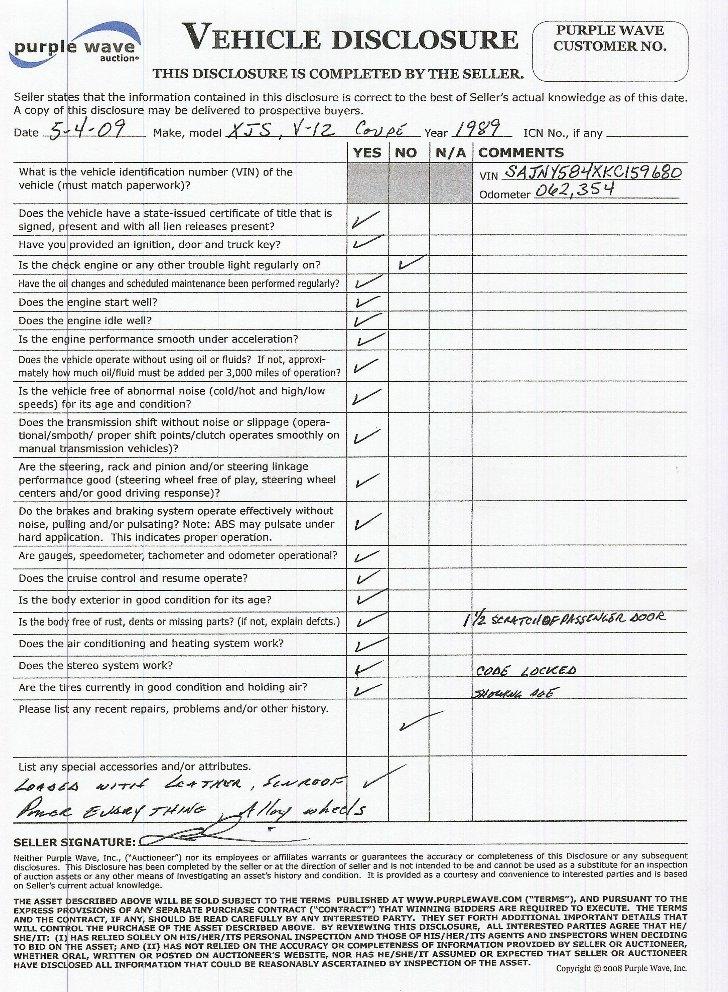 purple wave
auction
VEHICLE DISCLOSURE
PURPLE WAVE
CUSTOMER NO.
THIS DISCLOSURE IS COMPLETED BY THE SELLER.
Seller states that the information contained in this disclosure is correct to the best of Seller's actual knowledge as of this date.
A copy of this disclosure may be delivered to prospective buyers.
Date 5-4-09 Make, model XJS, V-12 COUPE Year 1989 ICN No., if any
YES NO N/A COMMENTS
What is the vehicle identification number (VIN) of the
vehicle (must match paperwork)?
VIN SAJNY584XKC159680
Odometer 062,354
Does the vehicle have a state-issued certificate of title that is
signed, present and with all lien releases present? ✓
Have you provided an ignition, door and truck key? ✓
Is the check engine or any other trouble light regularly on? ✓
Have the oil changes and scheduled maintenance been performed regularly? ✓
Does the engine start well? ✓
Does the engine idle well? ✓
Is the engine performance smooth under acceleration? ✓
Does the vehicle operate without using oil or fluids? If not, approxi-
mately how much oil/fluid must be added per 3,000 miles of operation? ✓
Is the vehicle free of abnormal noise (cold/hot and high/low
speeds) for its age and condition? ✓
Does the transmission shift without noise or slippage (opera-
tional/smooth/ proper shift points/clutch operates smoothly on
manual transmission vehicles)? ✓
Are the steering, rack and pinion and/or steering linkage
performance good (steering wheel free of play, steering wheel
centers and/or good driving response)? ✓
Do the brakes and braking system operate effectively without
noise, pulling and/or pulsating? Note: ABS may pulsate under
hard application. This indicates proper operation. ✓
Are gauges, speedometer, tachometer and odometer operational? ✓
Does the cruise control and resume operate? ✓
Is the body exterior in good condition for its age? ✓
Is the body free of rust, dents or missing parts? (if not, explain defcts.) ✓ 1 1/2 SCRATCH OF PASSENGER DOOR
Does the air conditioning and heating system work? ✓
Does the stereo system work? ✓ CODE LOCKED
Are the tires currently in good condition and holding air? ✓ SHOWING AGE
Please list any recent repairs, problems and/or other history. ✓
List any special accessories and/or attributes.
LOADED WITH LEATHER, SUNROOF ✓
POWER EVERY THING, Alloy wheels
SELLER SIGNATURE:
Neither Purple Wave, Inc., ("Auctioneer") nor its employees or affiliates warrants or guarantees the accuracy or completeness of this Disclosure or any subsequent
disclosures. This Disclosure has been completed by the seller or at the direction of seller and is not intended to be and cannot be used as a substitute for an inspection
of auction assets or any other means of investigating an asset's history and condition. It is provided as a courtesy and convenience to interested parties and is based
on Seller's current actual knowledge.
THE ASSET DESCRIBED ABOVE WILL BE SOLD SUBJECT TO THE TERMS PUBLISHED AT WWW.PURPLEWAVE.COM ("TERMS"), AND PURSUANT TO THE
EXPRESS PROVISIONS OF ANY SEPARATE PURCHASE CONTRACT ("CONTRACT") THAT WINNING BIDDERS ARE REQUIRED TO EXECUTE. THE TERMS
AND THE CONTRACT, IF ANY, SHOULD BE READ CAREFULLY BY ANY INTERESTED PARTY. THEY SET FORTH ADDITIONAL IMPORTANT DETAILS THAT
WILL CONTROL THE PURCHASE OF THE ASSET DESCRIBED ABOVE. BY REVIEWING THIS DISCLOSURE, ALL INTERESTED PARTIES AGREE THAT HE/
SHE/IT: (I) HAS RELIED SOLELY ON HIS/HER/ITS PERSONAL INSPECTION AND THOSE OF HIS/HER/ITS AGENTS AND INSPECTORS WHEN DECIDING
TO BID ON THE ASSET; AND (II) HAS NOT RELIED ON THE ACCURACY OR COMPLETENESS OF INFORMATION PROVIDED BY SELLER OR AUCTIONEER,
WHETHER ORAL, WRITTEN OR POSTED ON AUCTIONEER'S WEBSITE, NOR HAS HE/SHE/IT ASSUMED OR EXPECTED THAT SELLER OR AUCTIONEER
HAVE DISCLOSED ALL INFORMATION THAT COULD BE REASONABLY ASCERTAINED BY INSPECTION OF THE ASSET.
Copyright © 2008 Purple Wave, Inc.